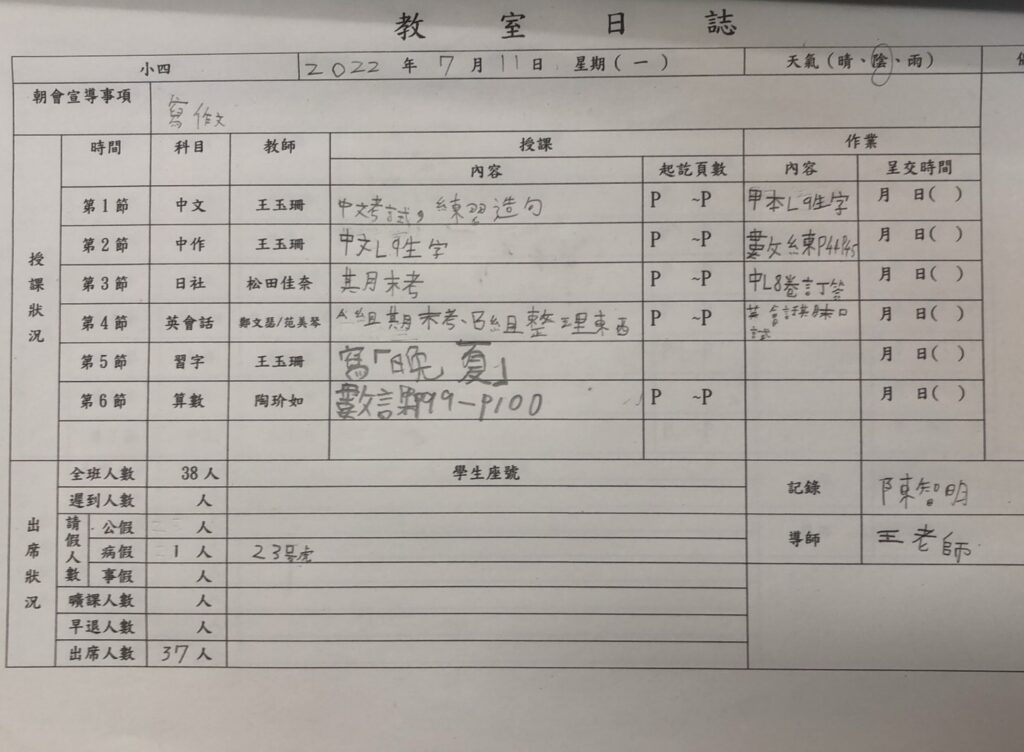 教室日誌
小四 2022年7月11日 星期(一) 天氣(晴、陰、雨)
朝會宣導事項 寫作文
時間 科目 教師 授課 作業
內容 起訖頁數 內容 呈交時間
授課狀況
第1節 中文 王玉珊 中文考試,練習造句 P ~P 甲本L9生字 月 日( )
第2節 中作 王玉珊 中文L9生字 P ~P 數文練P44P45 月 日( )
第3節 日社 松田佳奈 其月末考 P ~P 中L8卷訂簽 月 日( )
第4節 英會話 鄭文瑟/范美琴 A組期末考、B組整理東西 P ~P 英會話 口試 月 日( )
第5節 習字 王玉珊 寫「晚夏」 月 日( )
第6節 算數 陶玠如 數課P99-P100 P ~P 月 日( )
出席狀況
全班人數 38人 學生座號
遲到人數 人
請假人數
公假 人
病假 1人 23号虎
事假 人
曠課人數 人
早退人數 人
出席人數 37人
記錄 陳智明
導師 王老師